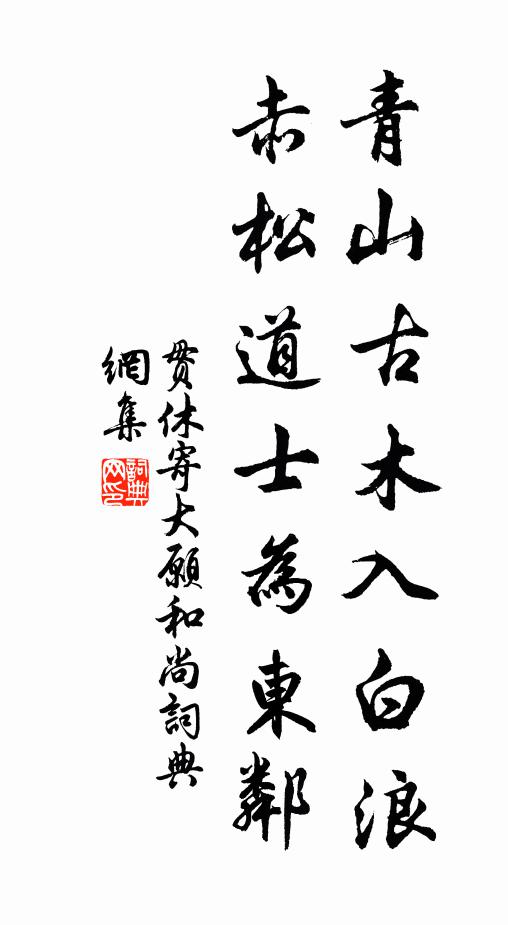 青山古木入白浪
赤松道士為東鄰
貫休寄大願和尚詞典
網集
詞典网印